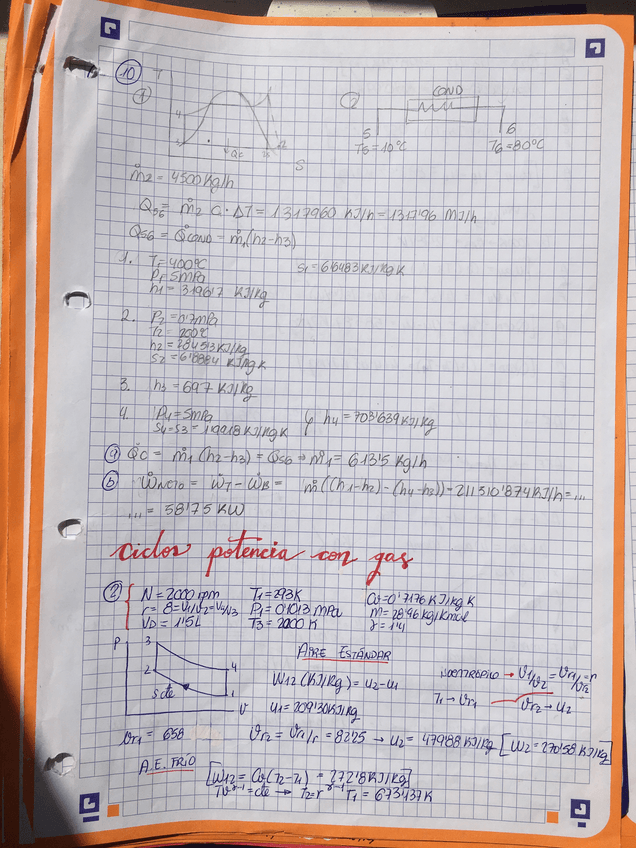 10
1
T
4
3
Qc
2s
2
S
2
COND
5
6
T5=10°C
T6=80°C
ṁ2 = 4500 Kg/h
Q̇56 = ṁ2 C · ΔT = 1317960 KJ/h = 1317'96 MJ/h
Q̇56 = Q̇COND = ṁ1(h2-h3)
1. T1=400°C s1=6'6483 KJ/Kg K
P1=5MPa
h1=3196'7 KJ/Kg
2. P2=0'7MPa
T2=200°C
h2=2845'3 KJ/Kg
s2=6'8884 KJ/Kg K
3. h3=697 KJ/Kg
4. P4=5MPa h4=703'639 KJ/Kg
s4=s3=1'9918 KJ/Kg K
a Q̇c = ṁ1(h2-h3) = Q̇56 → ṁ1= 613'5 Kg/h
b ẆNETO = ẆT - ẆB = ṁ((h1-h2)-(h4-h3)) = 211510'874 KJ/h = ...
... = 58'75 KW
ciclos potencia con gas
2 N = 2000 rpm T1=293K Cv=0'7176 KJ/Kg K
r = 8 = V1/V2 = V4/V3 P1=0'1013 MPa M=28'96 Kg/Kmol
VD = 1'5L T3=2000 K γ=1'4
P
3
2
4
1
s cte
V
AIRE ESTÁNDAR
W12 (KJ/Kg) = u2-u1
u1=209'30 KJ/Kg
ISOENTRÓPICO → V1/V2 = Vr1/Vr2 = r
T1 → Vr1 Vr2 → u2
Vr1 = 658
Vr2 = Vr1/r = 82'25 → u2 = 479'88 KJ/Kg [W12 = 270'58 KJ/Kg]
A.E. FRÍO
[W12 = Cv(T2-T1) = 272'8 KJ/Kg]
TVγ-1 = cte → T2=rγ-1 T1 = 673'137K